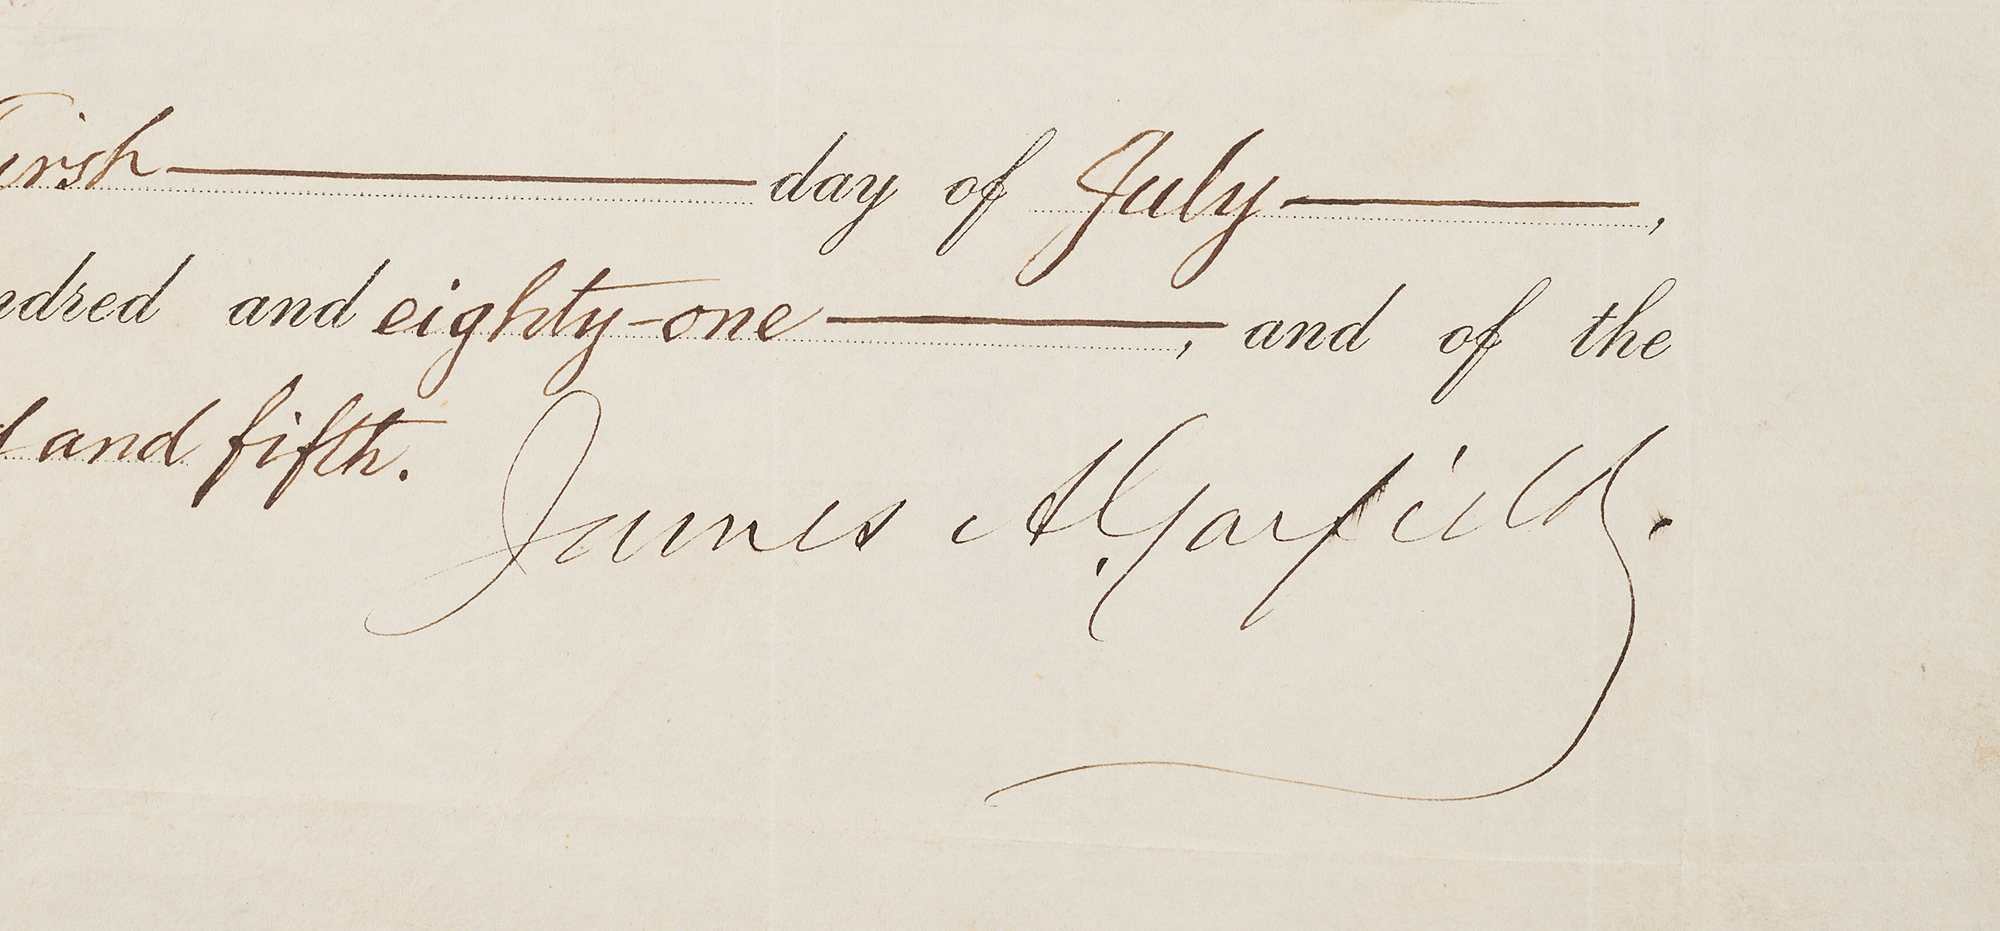 First ——— day of July ———,
ndred and eighty-one ———, and of the
d and fifth.
James A. Garfield.